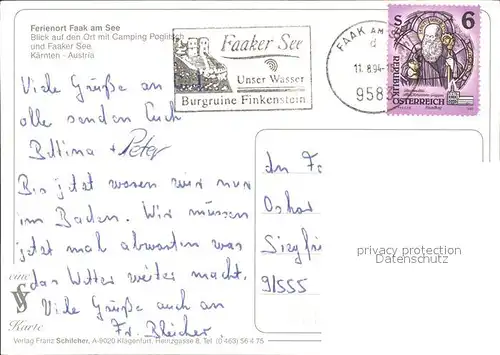 Ferienort Faak am See
Blick auf den Ort mit Camping Pogitsch
und Faaker See
Kärnten - Austria
Faaker See
Unser Wasser
Burgruine Finkenstein
FAAK AM
d
11.8.94-1
9583
S 6
REPUBLIK
ÖSTERREICH
Viele Grüße an
alle senden Euch
Bettina + Peter
Bis jetzt waren wir nur
im Baden. Wir müssen
jetzt mal abwarten was
das Wetter weiter macht.
Viele Grüße auch an
Fr. Bleicher.
An Fa
Oskar
Siegfrie
91555
privacy protection
Datenschutz
eine
Karte
Verlag Franz Schilcher, A-9020 Klagenfurt, Heinzgasse 8, Tel. (0 463) 56 4 75